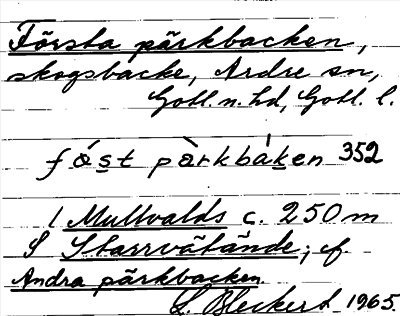 Första pärkbacken,
skogsbacke, Ardre sn,
Gotl. n. hd, Gotl. l.
fǻst pàrkbáken 352
1 Mullvalds c. 250 m
S Starrvätände; cf.
Andra pärkbacken.
L. Bleckert 1965.